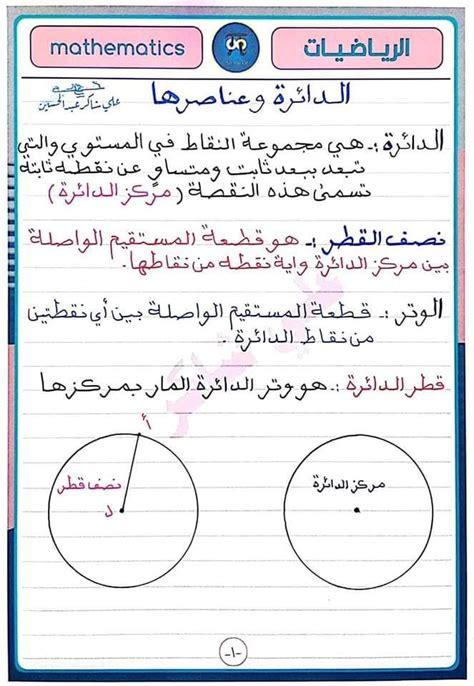 الرياضيات
mathematics
الدائرة وعناصرها
علي شاكر عبد الحسين
الدائرة :- هي مجموعة النقاط في المستوي والتي
تبعد ببعد ثابت ومتساوٍ عن نقطة ثابتة
تسمى هذه النقصة (مركز الدائرة)
نصف القطر :- هو قطعة المستقيم الواصلة
بين مركز الدائرة واية نقطه من نقاطها.
الوتر :- قطعة المستقيم الواصلة بين أي نقطتين
من نقاط الدائرة .
قطر الدائرة :- هو وتر الدائرة المار بمركزها
أ
مركز الدائرة
نصف قطر
د
علي شاكر
-١-